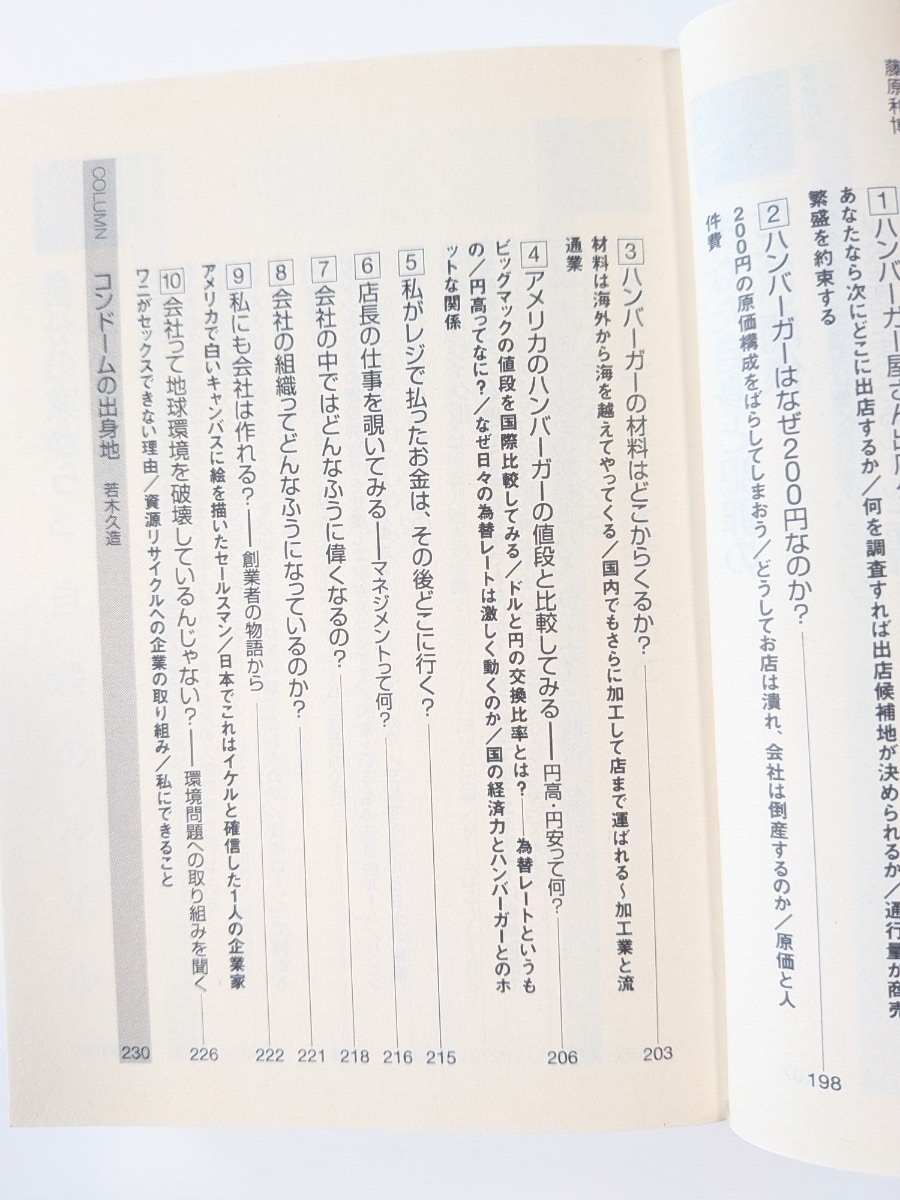 藤原和博
1 ハンバーガー屋さん出店
あなたなら次にどこに出店するか／何を調査すれば出店候補地が決められるか／通行量が商売
繁盛を約束する
2 ハンバーガーはなぜ200円なのか？ 198
200円の原価構成をばらしてしまおう／どうしてお店は潰れ、会社は倒産するのか／原価と人
件費
3 ハンバーガーの材料はどこからくるか？ 203
材料は海外から海を越えてやってくる／国内でもさらに加工して店まで運ばれる～加工業と流
通業
4 アメリカのハンバーガーの値段と比較してみる――円高・円安って何？ 206
ビッグマックの値段を国際比較してみる／ドルと円の交換比率とは？――為替レートというも
の／円高ってなに？／なぜ日々の為替レートは激しく動くのか／国の経済力とハンバーガーとのホ
ットな関係
5 私がレジで払ったお金は、その後どこに行く？ 215
6 店長の仕事を覗いてみる――マネジメントって何？ 216
7 会社の中ではどんなふうに偉くなるの？ 218
8 会社の組織ってどんなふうになっているのか？ 221
9 私にも会社は作れる？――創業者の物語から 222
アメリカで白いキャンバスに絵を描いたセールスマン／日本でこれはイケルと確信した1人の企業家
10 会社って地球環境を破壊しているんじゃない？――環境問題への取り組みを聞く 226
ワニがセックスできない理由／資源リサイクルへの企業の取り組み／私にできること
COLUMN コンドームの出身地 若木久造 230